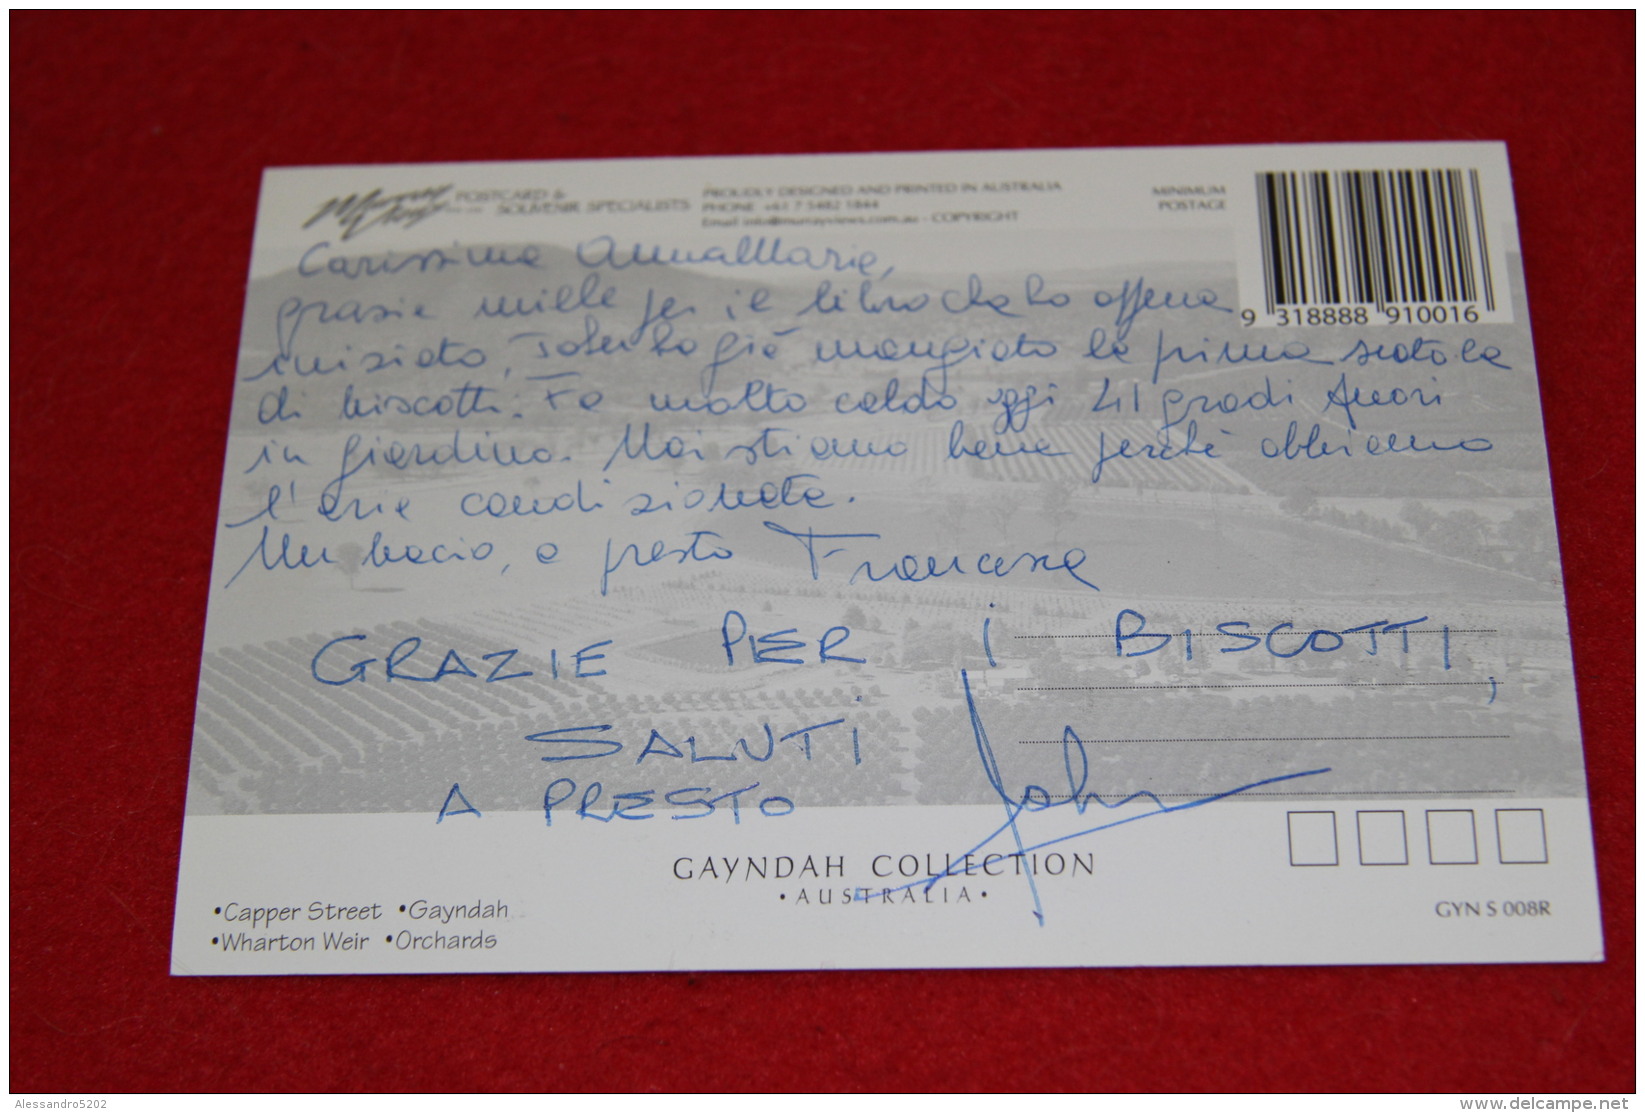 Murray Views
POSTCARD & SOUVENIR SPECIALISTS
PROUDLY DESIGNED AND PRINTED IN AUSTRALIA
PHONE +61 7 5482 1844
Email info@murrayviews.com.au - COPYRIGHT
MINIMUM POSTAGE
9 318888 910016
Carissima AnnaMaria,
grazie mille per il libro che ho appena
iniziato, John ha già mangiato la prima scatola
di biscotti. Fa molto caldo oggi 41 gradi fuori
in giardino. Noi stiamo bene perchè abbiamo
l'aria condizionata.
Un bacio, a presto Francesca
GRAZIE PER I BISCOTTI,
SALUTI
A PRESTO John
GAYNDAH COLLECTION
• AUSTRALIA •
•Capper Street •Gayndah
•Wharton Weir •Orchards
GYN S 008R
Alessandro5202
www.delcampe.net